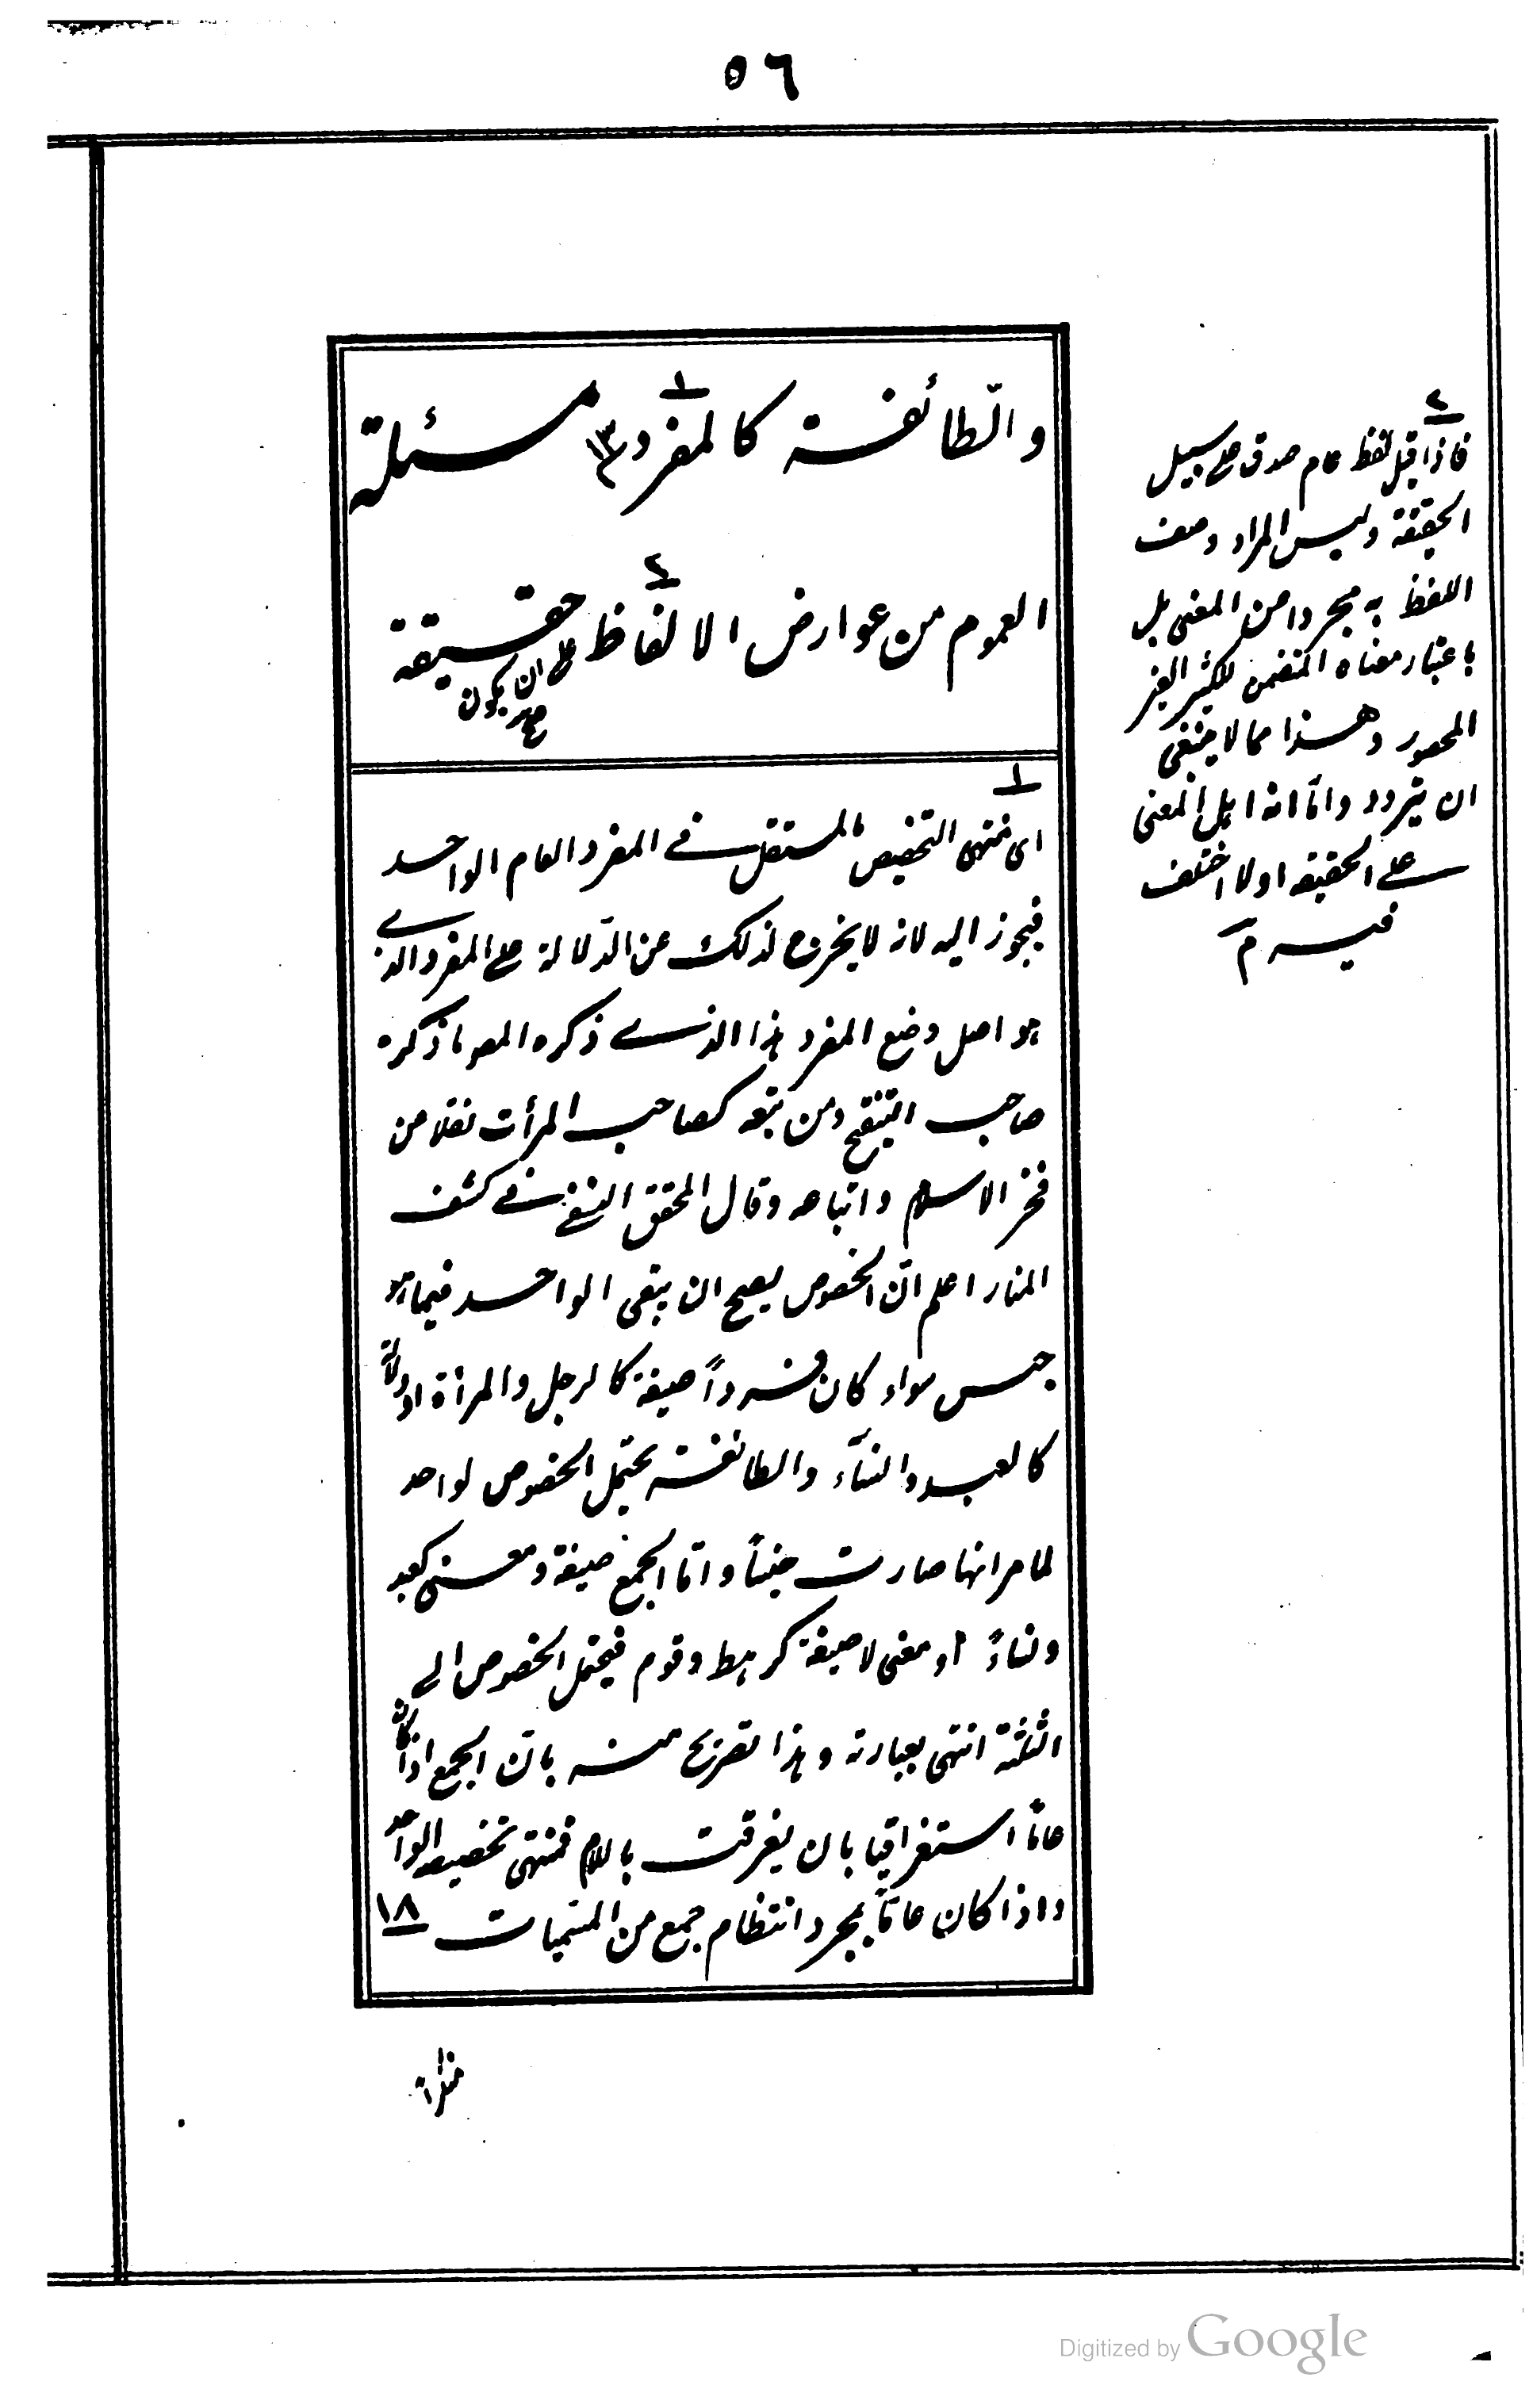 ٥٦
والطّائفة كالمفرد ١٣ مسئلة
العموم من عوارض الالفاظ حقيقة
على ان يكون
اى منتهى التخصيص بالمستقل فے المفرد العام الواحد
فيجوز اليه لانه لا يخرج لذلك عن الدّلالة على المفرد الذے
هو اصل وضع المفرد هذا الذے ذكره المص ما ذكره
صاحب التنقيح ومن تبعه كصاحب المرأت نقلا من
فخر الاسلام واتباعه وقال المحقق النسفے فے كشف
المنار اعلم انّ الخصوص يصح ان يبقى الواحد فيما هو
جنس سواء كان فرداً صيغة كالرجل والمرأة او دلالة
كالعبيد والنسآء والطائفة يحتمل الخصوص لواحد
لما مر انها صارت جنساً وامّا الجمع صيغة ومعنى كعبيد
ونساءً أو معنى لا صيغة كرهط وقوم فيحتمل الخصوص الى
الثلثة انتهى بعبارته وهذا تصريح منه بانّ الجمع اذا كان
عامّاً استغراقيا بان يعرف باللام فمنتهى تخصيصه الواحد
واذا كان عامّاً بمجرد انتظام جمع من المسمّيات ١٨
فاذا قيل لفظ عام صدق على سبيل
الحقيقة وليس المراد وصف
اللفظ به مجردا من المعنى بل
باعتبار معناه المتضمن للكثير الغير
المحصور وهذا مما لا ينبغى
ان يتردد وامّا انه اهل المعنى
على الحقيقة اولا اختلف
فيه م
Digitized by Google